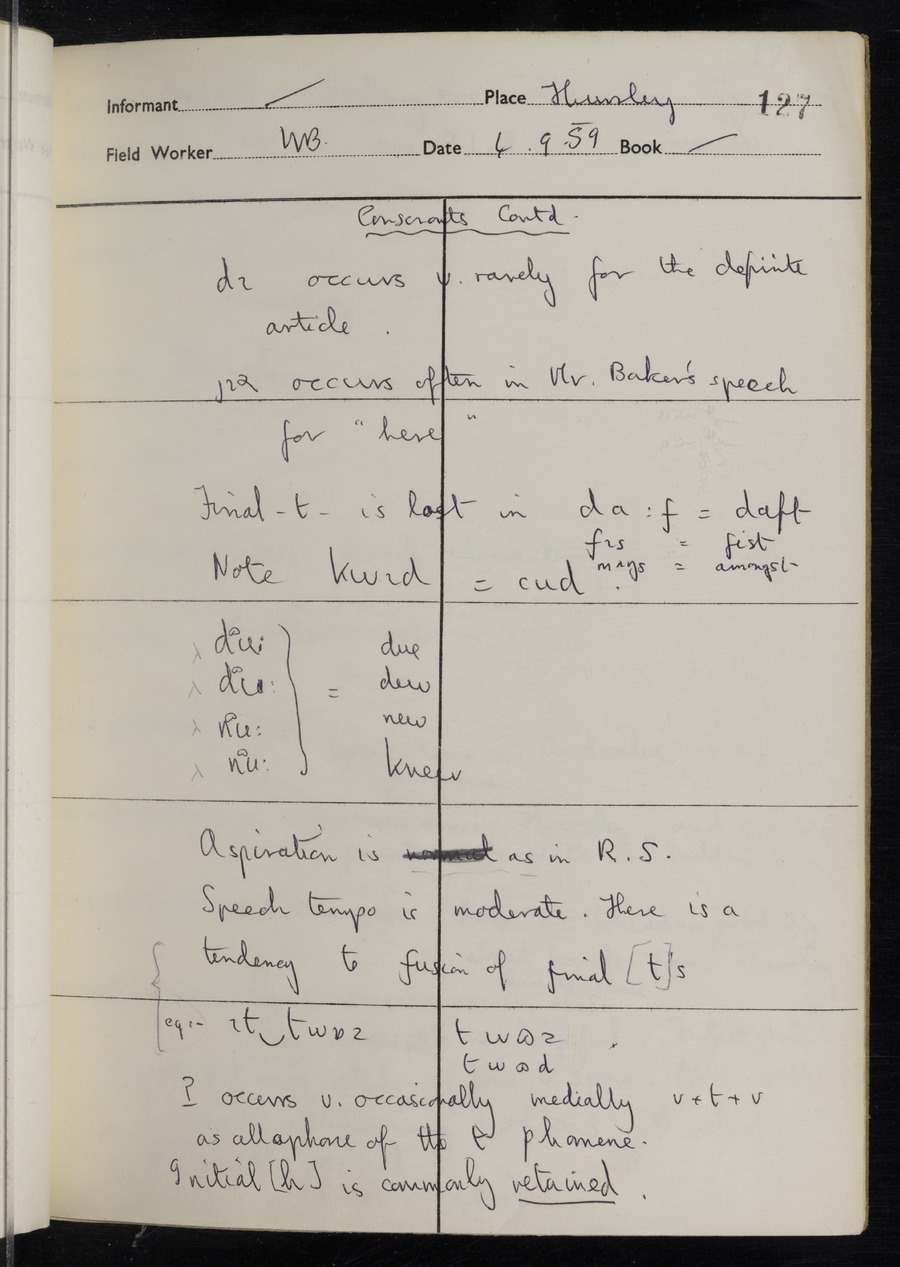 Informant / Place Hursley 127
Field Worker WB. Date 4.9.59 Book /
Consonants Contd.
dɪ occurs v. rarely for the definite
article.
jɪə occurs often in Mr. Baker's speech
for "here"
Final -t- is lost in da:f = daft
fɪs = fist
= amongst
Note kwɪd = cud.
due
dew
new
knew
Aspiration is as in R.S.
Speech tempo is moderate. There is a
tendency to fusion of final [t]s
eg:- ɪt‿twɒz twɒz
twɒd
ʔ occurs v. occasionally medially v+t+v
as allophone of the t phoneme.
Initial [h] is commonly retained.